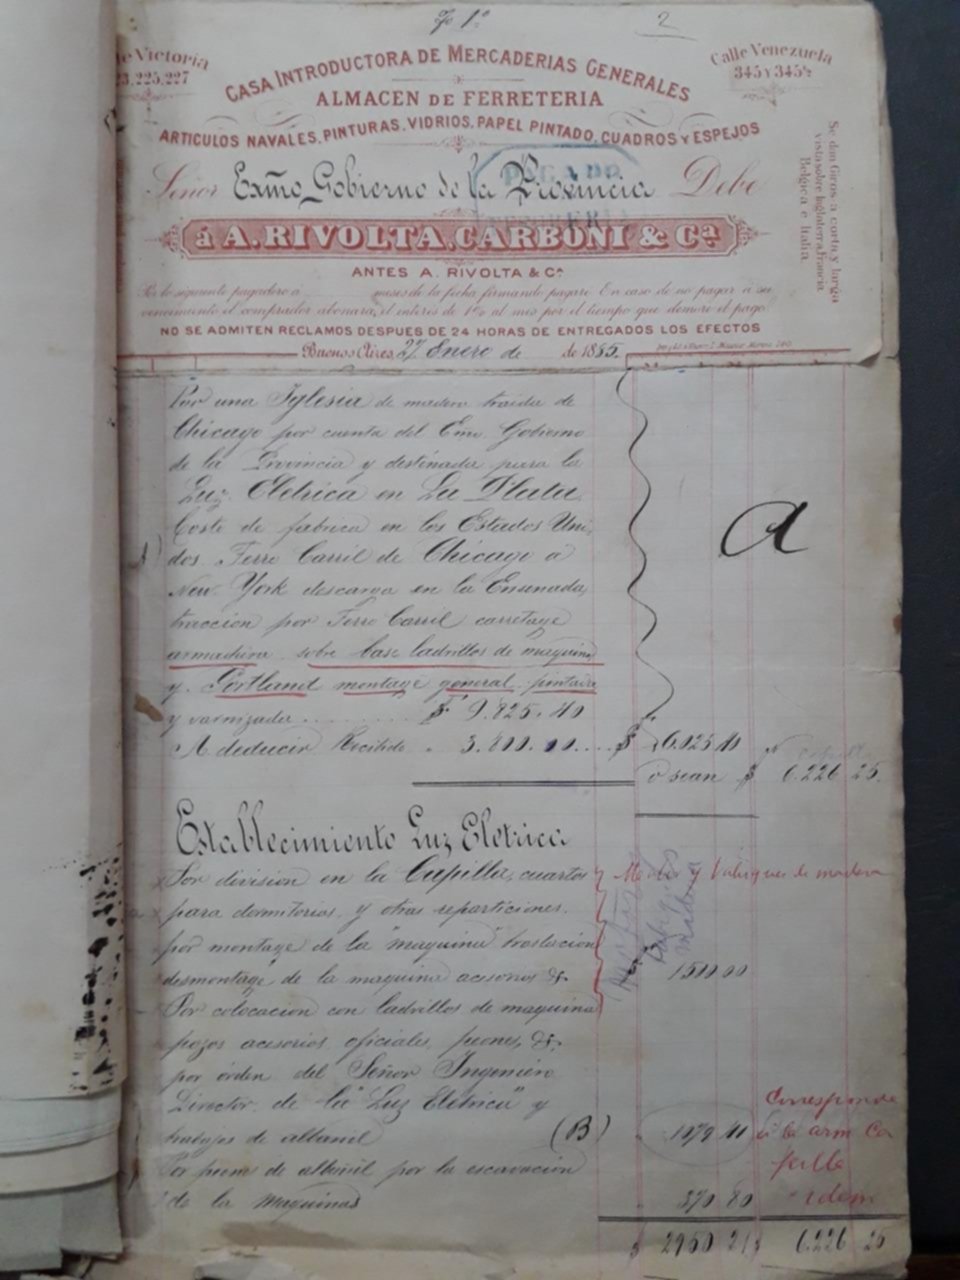 Fo 1º
2
Calle Victoria
225.227
Calle Venezuela
345 Y 345½
CASA INTRODUCTORA DE MERCADERIAS GENERALES
ALMACEN DE FERRETERIA
ARTICULOS NAVALES, PINTURAS, VIDRIOS, PAPEL PINTADO, CUADROS Y ESPEJOS
Se dan Giros a corta y larga
vista sobre Inglaterra, Francia,
Belgica e Italia
PAGADO
Señor Exmo Gobierno de la Provincia Debe
á A. RIVOLTA, CARBONI & Cª
ANTES A. RIVOLTA & Cª
Por lo siguiente pagadero á meses de la fecha firmando pagaré En caso de no pagar á su
vencimiento el comprador abonará el interés de 1% al mes por el tiempo que demore el pago
NO SE ADMITEN RECLAMOS DESPUES DE 24 HORAS DE ENTREGADOS LOS EFECTOS
Buenos Aires, 27 Enero de de 1885.
Por una Iglesia de madera traida de
Chicago por cuenta del Emo Gobierno
de la Provincia y destinada para la
Luz Eletrica en La Plata.
Coste de fabrica en los Estados Uni-
dos Ferro Carril de Chicago á
New York descarga en la Ensenada,
traccion por Ferro Carril carretage
armadura sobre base ladrillos de maquina
y Portland montage general pintada
y varnizada $ 9.825.40
A deducir Recibido 3.800.00 $ 6.025 40
o sean $ 6.226 25
a
Establecimiento Luz Eletrica
Por division en la Capilla, cuartos
para dormitorios, y otras reparticiones.
por montage de la "maquina" traslacion
desmontage de la maquina acesorios &.
1510 00
tabiques de madera
Por colocacion con ladrillos de maquina
pozos acesorios, oficiales, peones, &.
por órden del Señor Ingeniero
Director de la "Luz Eletrica" y
trabajos de albañil (B) 1079 41
Corresponde
á la arm Ca
pilla
Por peone de albañil por la escavacion
de la maquinas 370 80
idem
$ 2960 21 $ 6.226 25